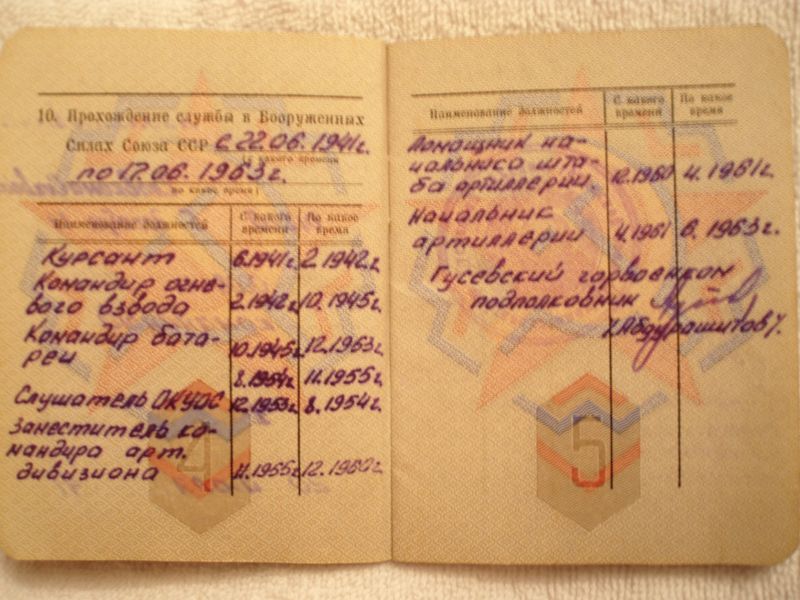 10. Прохождение службы в Вооруженных
Силах Союза ССР с 22.06.1941г.
(с какого времени
по 17.06.1963г.
по какое время)
Наименование должностей С какого времени По какое время
Курсант 6.1941г. 2.1942.г
Командир огне-
вого взвода 2.1942г. 10.1945г.
Командир бата-
реи 10.1945г. 12.1953г.
8.1954г. 11.1955г.
Слушатель ОКУОС 12.1953г. 8.1954г.
Заместитель ко-
мандира арт.
дивизиона 11.1955г. 12.1960г.
4
Наименование должностей С какого времени По какое время
Помощник на-
чальника шта-
ба артиллерии 12.1960 4.1961г.
Начальник
артиллерии 4.1961 6.1963г.
Гусевский горвоенком
подполковник
/Абдурашитов/
5